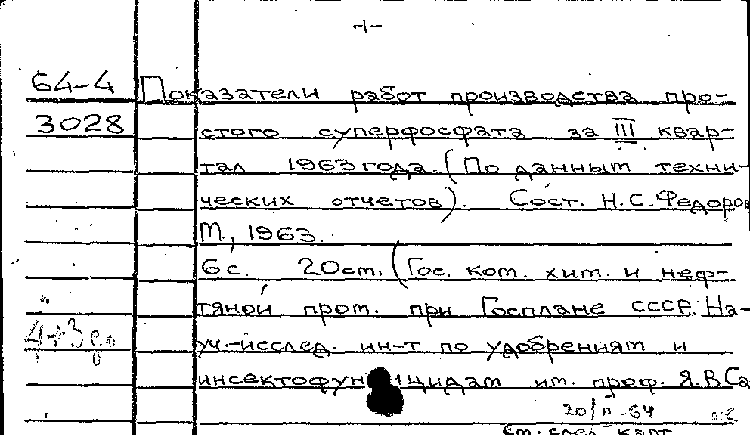 -1-
64-4 Показатели работ производства про-
3028 стого суперфосфата за III квар-
тал 1963 года. (По данным техни-
ческих отчетов). Сост. Н.С. Федоров
М., 1963.
6 с. 20 ст. (Гос. ком. хим. и неф-
тяной пром. при Госплане СССР. На-
уч.-исслед. ин-т по удобрениям и
инсектофунгицидам им. проф. Я.В. Са
20/II-64
См. след. карт